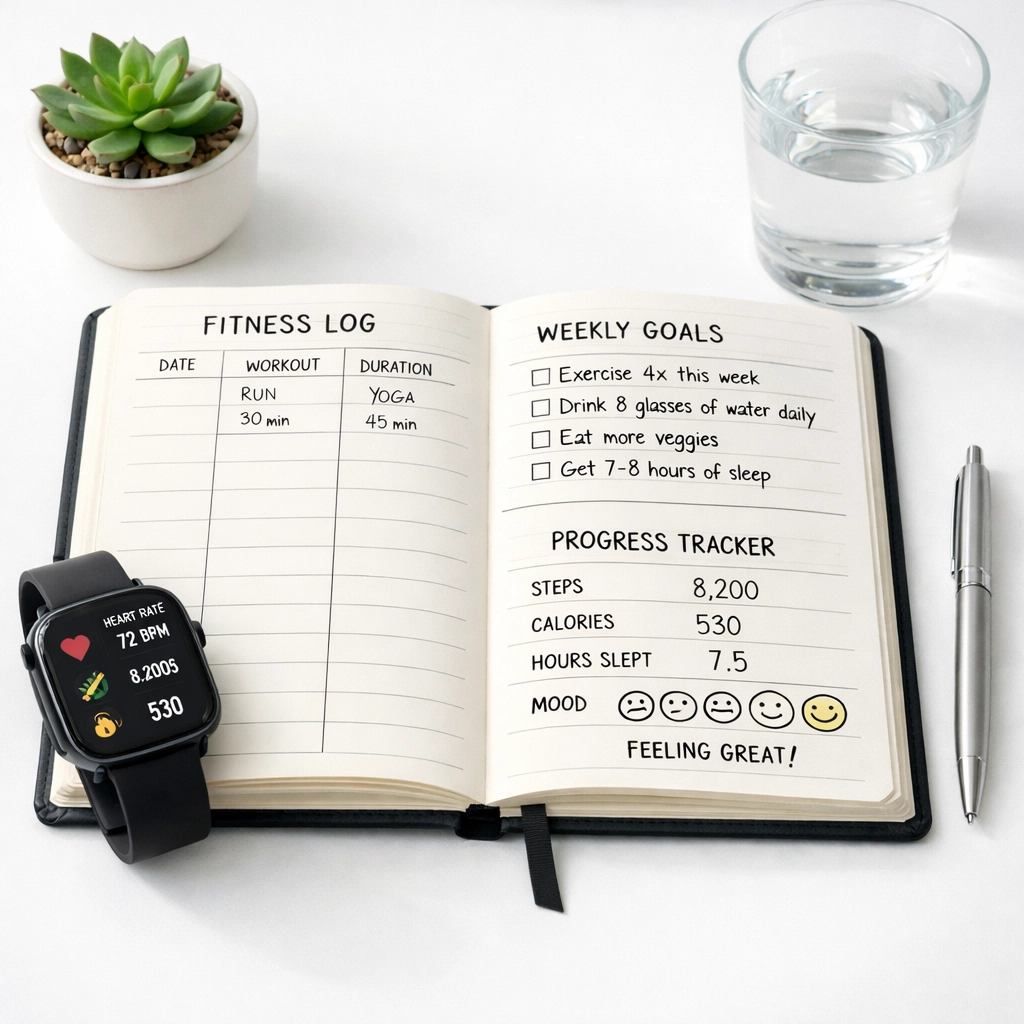 FITNESS LOG
DATE WORKOUT DURATION
RUN YOGA
30 min 45 min
WEEKLY GOALS
Exercise 4x this week
Drink 8 glasses of water daily
Eat more veggies
Get 7-8 hours of sleep
PROGRESS TRACKER
STEPS 8,200
CALORIES 530
HOURS SLEPT 7.5
MOOD
FEELING GREAT!
HEART RATE
72 BPM
8.2005
530